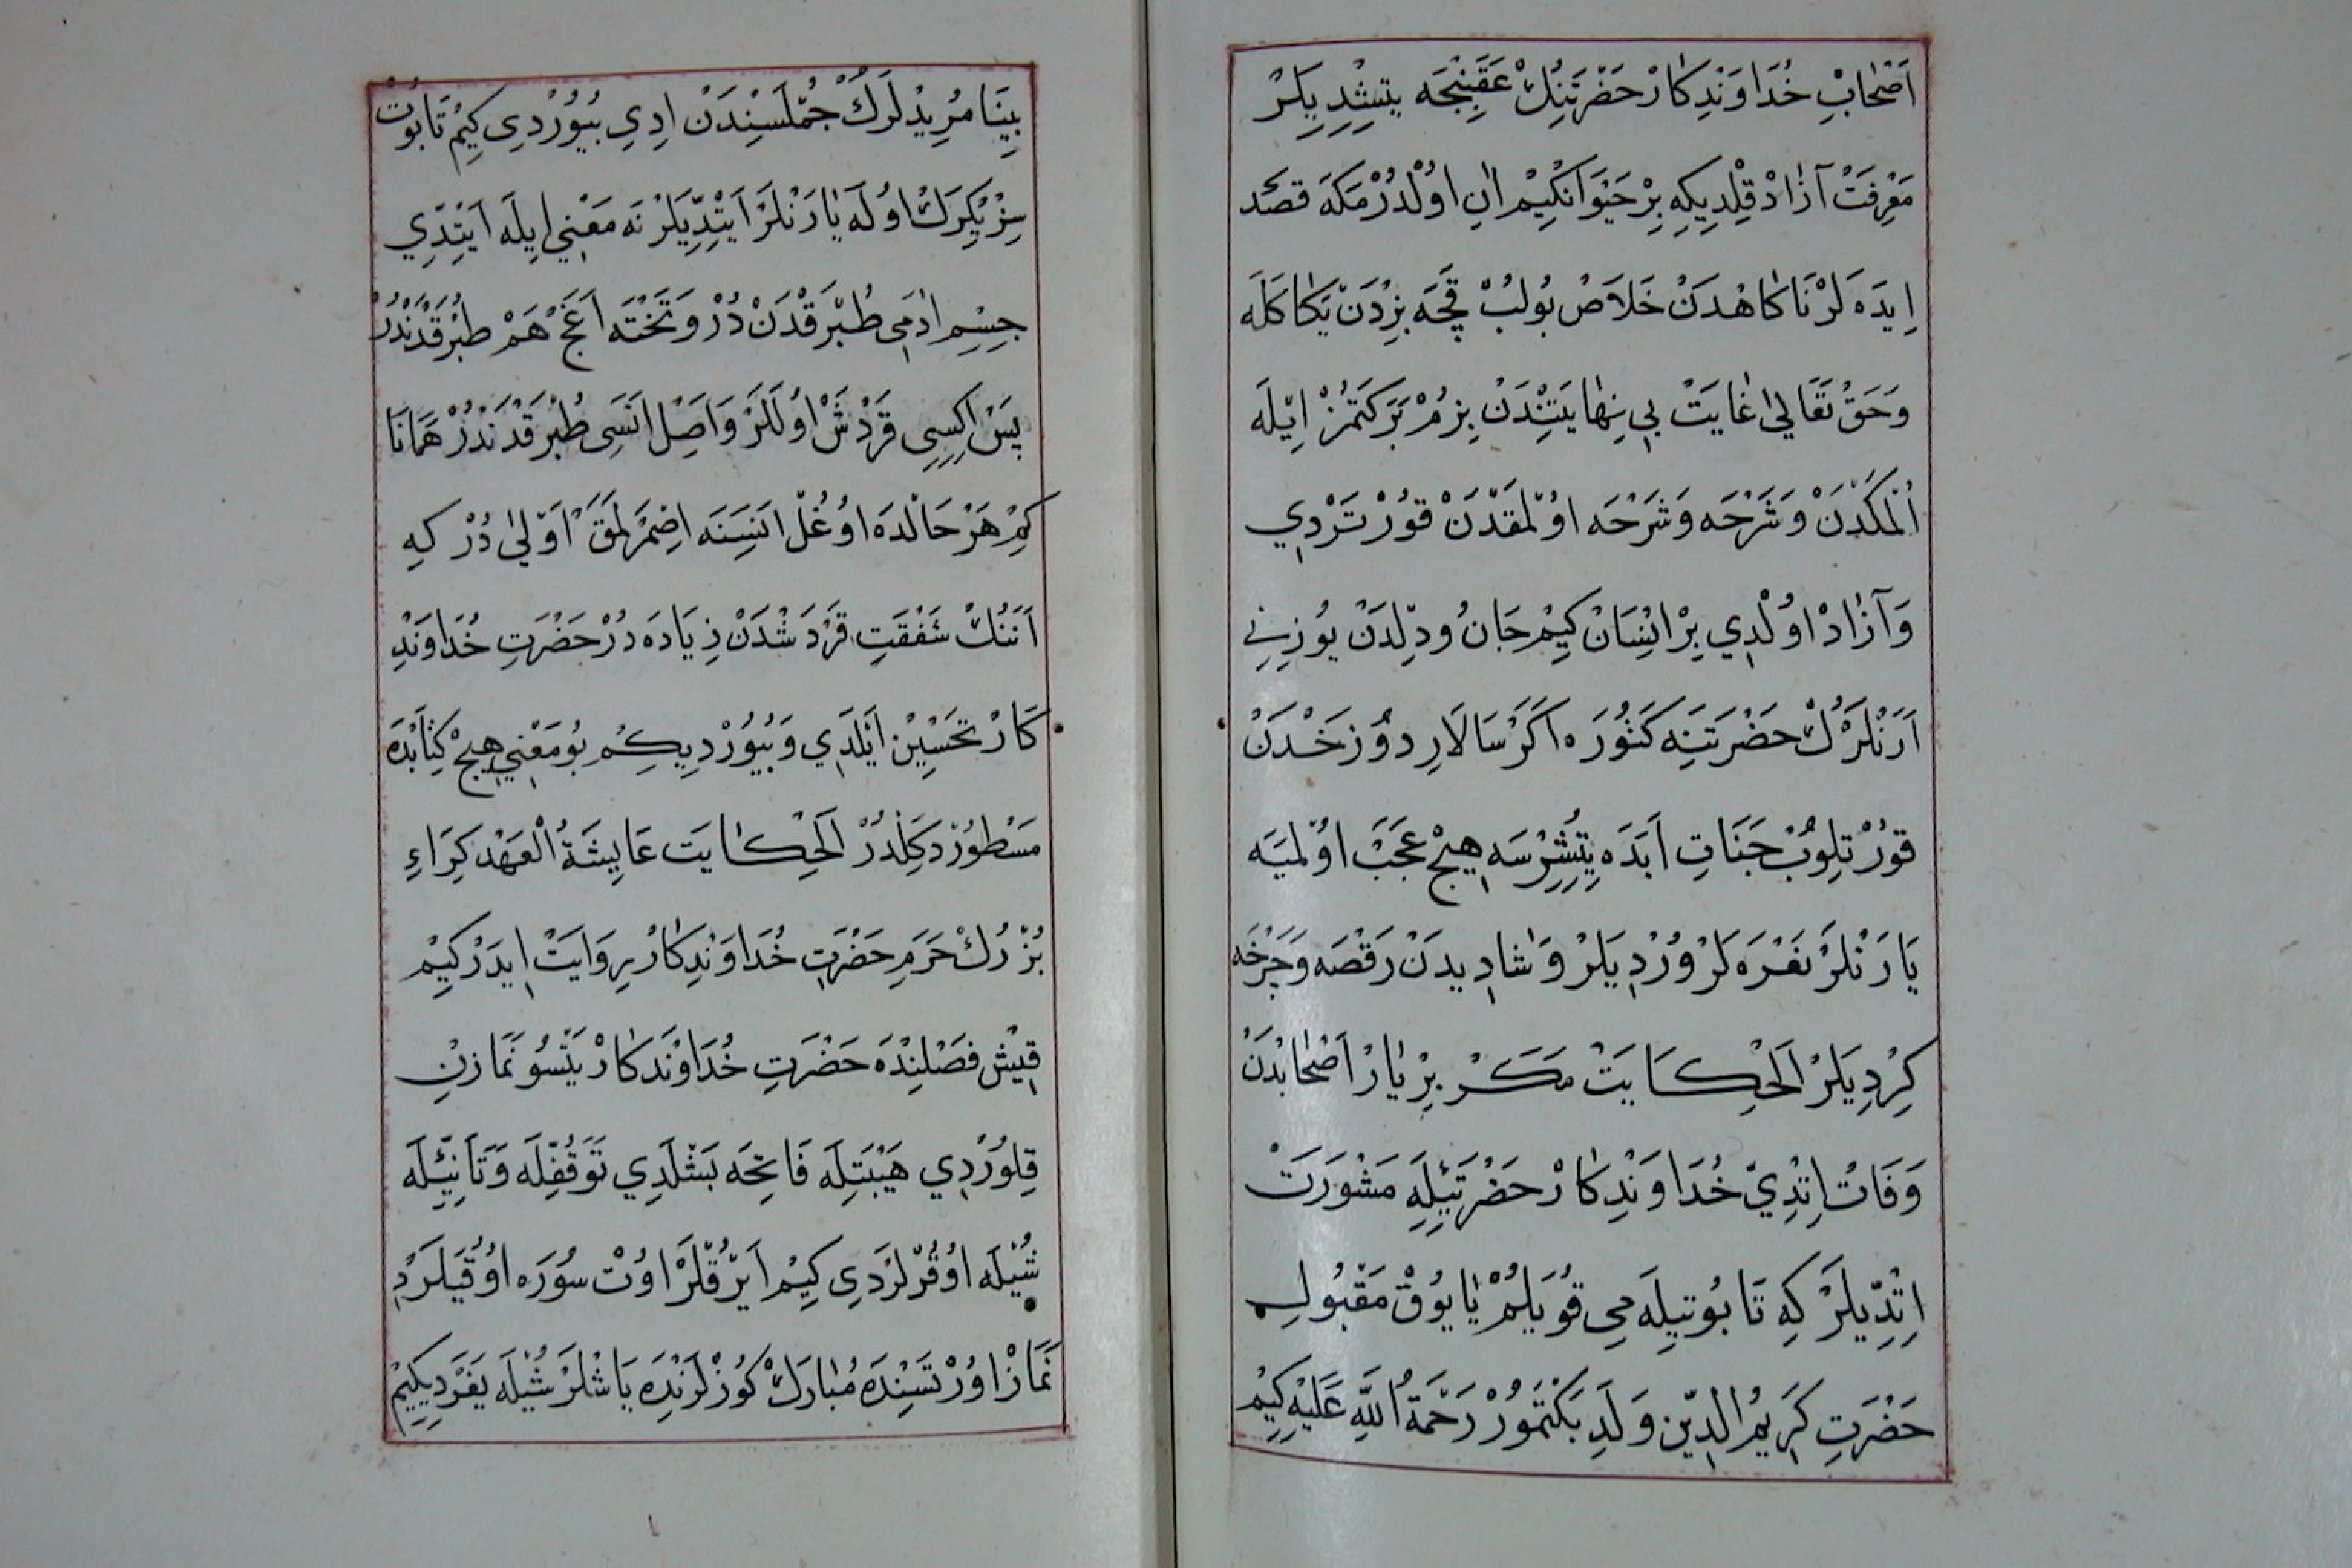 اَصْحَابِ خُدَاوَنْدِكَارْ حَضْرَتِنِكْ عَقَبِنْجَه يِتِشْدِيلَرْ
مَعْرِفَتْ آزَادْ قِلْدِيكِه بِرْ حَيْوَانكِيمْ اَنِ اوُلْدُرْمَكَه قَصْد
اِيدَه لَرْ نَاكَاهْدَنْ خَلَاصْ بُولُبْ قَچَه بِزْدَنْ يَكَا كَلَه
وَحَقْ تَعَالَى غَايَتْ بِي نِهَايَتِنْدَنْ بِزُمْ بَرَكَتَمُزْ اِيلَه
اُلْمَكْدَنْ وَشَرْحَه وَشَرْحَه اوُلْمَقْدَنْ قُورْتَرْدِي
وَآزَادْ اوُلْدِي بِرْ اِنْسَانْ كِيمْ جَانُ ودِلْدَنْ يُوزِينِي
اَرَنْلَرُكْ حَضْرَتِنَه كَتُورَه اَكَرْ سَالَارِ دُوزَخْدَنْ
قُورْتِلُوبْ جَنَاتِ اَبَدَه يِتِشِرْسَه هِيچْ عَجَبْ اوُلْمَيَه
يَارَنْلَرْ نَعْرَه لَرْ وُرْدِيلَرْ وَشَادِيدَنْ رَقْصَه وَچَرْخَه
كِرْدِيلَرْ اَلْحِكَايَتْ مَكَرْ بِرْ يَارْ اَصْحَابْدَنْ
وَفَاتْ اِتْدِي خُدَاوَنْدِكَارْ حَضْرَتِيلَه مَشْوَرَتْ
اِتْدِيلَرْ كِه تَابُوتِيلَه مِي قُويَلُمْ يَا يُوقْ مَقْبُولِ
حَضْرَتِ كَرِيمُ الدِّينِ وَلَدِ بَكْتَمُورْ رَحْمَةُ اللَّهِ عَلَيْهِ كِيمْ
بِينَا مُرِيدْلَرُكْ جُمْلَسِنْدَنْ اِدِي بُيُورْدِي كِيمْ تَابُوتْ
سِزْ كِرَكْ اوُلَه يَارَنْلَرْ اَيِتْدِيلَرْ نَه مَعْنِي اِيلَه اَيِتْدِي
جِسْمِ اٰدَمِي طُبْرَقْدَنْ دُرْ وَتَخْتَه اَغَجْ هَمْ طُبْرَقْدَنْدُرْ
بَسْ اِكِسِي قَرْدَشْ اوُلَلَرْ وَاَصِلْ اَنَسِي طُبْرَقْدَنْدُرْ هَمَانَا
كِمْ هَرْ حَالْدَه اوُغُلْ اَنَسِنَه اِصْمَرْلَمَقْ اَوْلَى دُرْ كِه
اَنَنُكْ شَفْقَتِ قَرْدَشْدَنْ زِيَادَه دُرْ حَضْرَتِ خُدَاوَنْدِ
كَارْ تَحْسِينْ اَيْلَدِي وَبُيُورْدِيكِمْ بُو مَعْنِي هِيچْ كِتَابْدَه
مَسْطُورْ دَكِلْدُرْ اَلْحِكَايَتْ عَايِشَةُ الْعَهْد كِرَاءِ
بُزُرْكْ حَرَمِ حَضْرَتِ خُدَاوَنْدِكَارْ رِوَايَتْ اِيدَرْ كِيمْ
قِيشْ فَصْلِنْدَه حَضْرَتِ خُدَاوَنْدِكَارْ يَتْسُو نَمَازِنْ
قِلُورْدِي هَيْبَتِلَه فَاتِحَه بَشْلَدِي تَوَقُّفِلَه وَتَاَنِّيلَه
شُيْلَه اوُقُرْلَرْدِي كِيمْ اَيْرُقْلَرْ اوُتْ سُورَه اوُقُيَلَرْدِ
نَمَازْ اوُرْتَسِنْدَه مُبَارَكْ كُوزْلَرِنْدَه يَاشْلَرْ شُيْلَه يَغَرْدِي كِيمْ